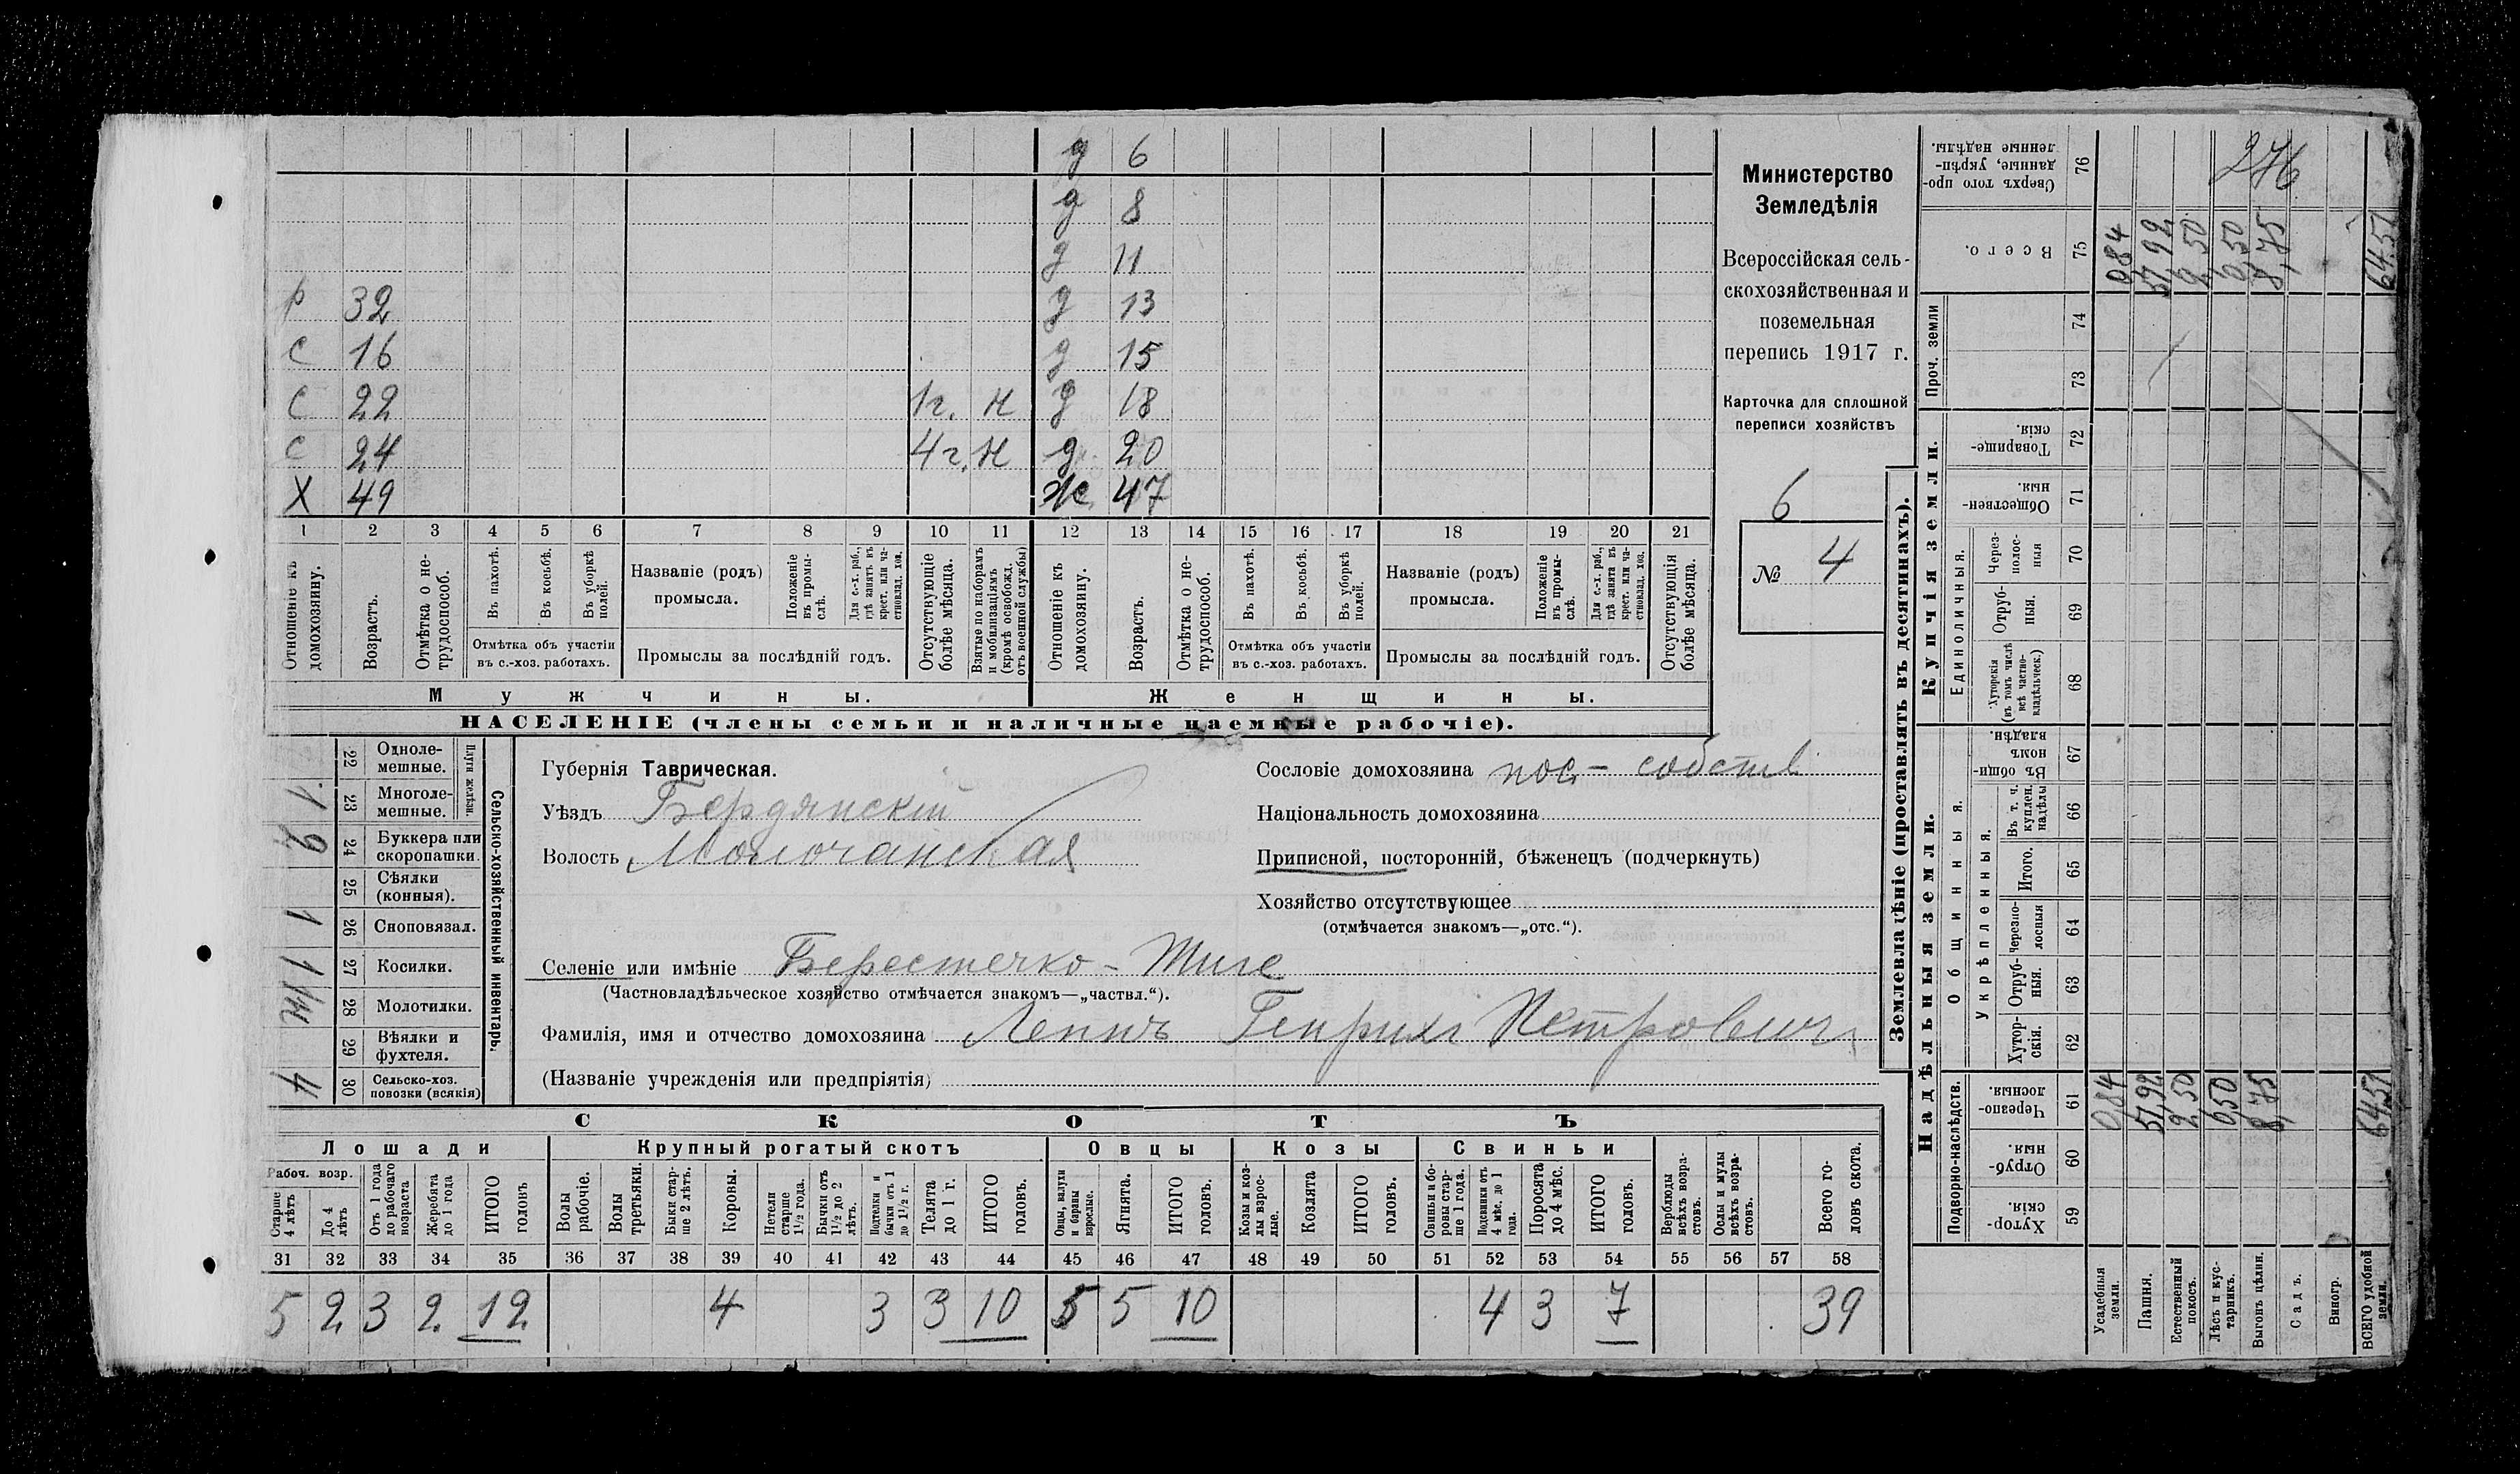 д 6
д 8
д 11
р 32 д 13
с 16 д 15
с 22 1г. н д 18
с 24 4г. н д 20
Х 49 Ж 47
1 2 3 4 5 6 7 8 9 10 11 12 13 14 15 16 17 18 19 20 21
Отношеніе къ домохозяину.
Возрастъ.
Отмѣтка о не-
трудоспособ.
Въ пахотѣ.
Въ косьбѣ.
Въ уборкѣ
полей.
Отмѣтка объ участіи
въ с.-хоз. работахъ.
Названіе (родъ)
промысла.
Положеніе
въ промы-
слѣ.
Для с.-х. раб.,
гдѣ занятъ въ
крест. или ча-
стновлад. хоз.
Промыслы за послѣдній годъ.
Отсутствующіе
болѣе мѣсяца.
Взятые по наборамъ
и мобилизаціямъ
(кромѣ освобожд.
отъ военной службы)
Отношеніе къ
домохозяину.
Возрастъ.
Отмѣтка о не-
трудоспособ.
Въ пахотѣ.
Въ косьбѣ.
Въ уборкѣ
полей.
Отмѣтка объ участіи
въ с.-хоз. работахъ.
Названіе (родъ)
промысла.
Положеніе
въ промы-
слѣ.
Для с.-х. раб.,
гдѣ занята въ
крест. или ча-
стновлад. хоз.
Промыслы за послѣдній годъ.
Отсутствующія
болѣе мѣсяца.
Мужчины. Женщины.
НАСЕЛЕНІЕ (члены семьи и наличные наемные рабочіе).
Министерство
Земледѣлія
Всероссійская сель-
скохозяйственная и
поземельная
перепись 1917 г.
Карточка для сплошной
переписи хозяйствъ
6
№ 4
Сельско-хозяйственный инвентарь.
Плуги желѣзн.
22 Одноле-
мешные.
1 23 Многоле-
мешные.
2 24 Буккера или
скоропашки.
25 Сѣялки
(конныя).
1 26 Сноповязал.
1 27 Косилки.
28 Молотилки.
29 Вѣялки и
фухтеля.
4 30 Сельско-хоз.
повозки (всякія)
Губернія Таврическая.
Уѣздъ Бердянскій
Волость Молочанская
Сословіе домохозяина пос-собств
Національность домохозяина
Приписной, посторонній, бѣженецъ (подчеркнуть)
Хозяйство отсутствующее
(отмѣчается знакомъ—„отс.“).
Селеніе или имѣніе Берестечко - Тиге
(Частновладѣльческое хозяйство отмѣчается знакомъ—„частвл.“).
Фамилія, имя и отчество домохозяина Леппъ Генрихъ Петровичъ
(Названіе учрежденія или предпріятія)
СКОТЪ
Лошади Крупный рогатый скотъ Овцы Козы Свиньи
Рабоч. возр.
Старше
4 лѣтъ
До 4
лѣтъ
Отъ 1 года
до рабочаго
возраста
Жеребята
до 1 года
ИТОГО
головъ
Волы
рабочіе.
Волы
третьяки.
Быки стар-
ше 2 лѣтъ.
Коровы.
Нетели
старше
1½ года.
Бычки отъ
1½ до 2
лѣтъ.
Подтелки и
бычки отъ 1
до 1½ г.
Телята
до 1 г.
ИТОГО
головъ.
Овцы, валухи
и бараны
взрослые.
Ягнята.
ИТОГО
головъ.
Козы и коз-
лы взрос-
лые.
Козлята
ИТОГО
головъ.
Свиньи и бо-
ровы стар-
ше 1 года.
Подсвинки отъ
4 мѣс. до 1
года.
Поросята
до 4 мѣс.
ИТОГО
головъ.
Верблюды
всѣхъ возра-
стовъ.
Ослы и мулы
всѣхъ возра-
стовъ.
Всего го-
ловъ скота.
31 32 33 34 35 36 37 38 39 40 41 42 43 44 45 46 47 48 49 50 51 52 53 54 55 56 57 58
5 2 3 2 12 4 3 3 10 5 5 10 4 3 7 39
Землевладѣніе (проставлять въ десятинахъ).
Надѣльныя земли. Купчія земли. Проч. земли
Подворно-наслѣдств. Общинныя. Единоличныя.
Укрѣпленныя.
Хутор-
скія. 59
Отруб-
ныя. 60
Черезпо-
лосныя. 61
Хутор-
скія. 62
Отруб-
ныя. 63
Черезпо-
лосныя 64
Итого. 65
Въ т. ч.
куплен.
надѣлы 66
Въ общин-
номъ
владѣн. 67
Хуторскія
(въ томъ числѣ
всѣ частно-
владѣльческ.) 68
Отруб-
ныя. 69
Через-
полос-
ныя 70
Обществен-
ныя. 71
Товарище-
скія. 72
73
74
Всего. 75
Сверхъ того про-
данные, укрѣп-
ленные надѣлы. 76
276
Усадебныя
земли. 0,84 0,84
Пашня. 51,92 51,92
Естественный
покосъ. 2,50 2,50
Лѣсъ и кус-
тарникъ. 0,50 0,50
Выгонъ цѣлин. 8,75 8,75
Садъ.
Виногр.
ВСЕГО удобной
земли. 64,51 64,51